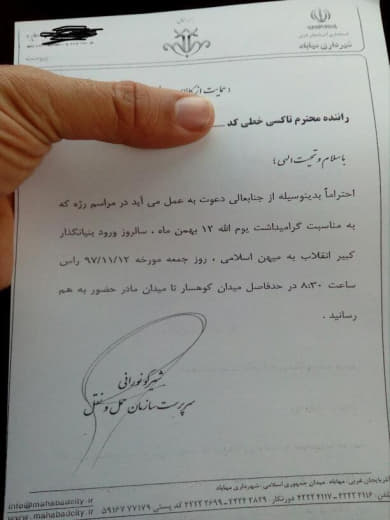 شهرداری مهاباد
حمایت از کالای
راننده محترم تاکسی خطی کد
با سلام و تحیت الهی؛
احتراماً بدینوسیله از جنابعالی دعوت به عمل می آید در مراسم رژه که
به مناسبت گرامیداشت یوم الله ۱۲ بهمن ماه ، سالروز ورود بنیانگذار
کبیر انقلاب به میهن اسلامی ، روز جمعه مورخه ۹۷/۱۱/۱۲ راس
ساعت ۸:۳۰ در حدفاصل میدان کوهسار تا میدان مادر حضور به هم
رسانید .
شیرکو نورانی
سرپرست سازمان حمل و نقل
آذربایجان غربی، مهاباد، میدان جمهوری اسلامی، شهرداری مهاباد
info@mahabadcity.ir
تلفن: ۴۱۱۶ ۴۲۳۳ - ۴۱۱۷ ۴۲۳۳ دورنگار: ۲۸۲۹ ۴۲۲۲ - ۲۶۹۹ ۴۲۲۲ کد پستی ۷۷۱۷۹ ۵۹۱۶۷
www.mahabadcity.ir